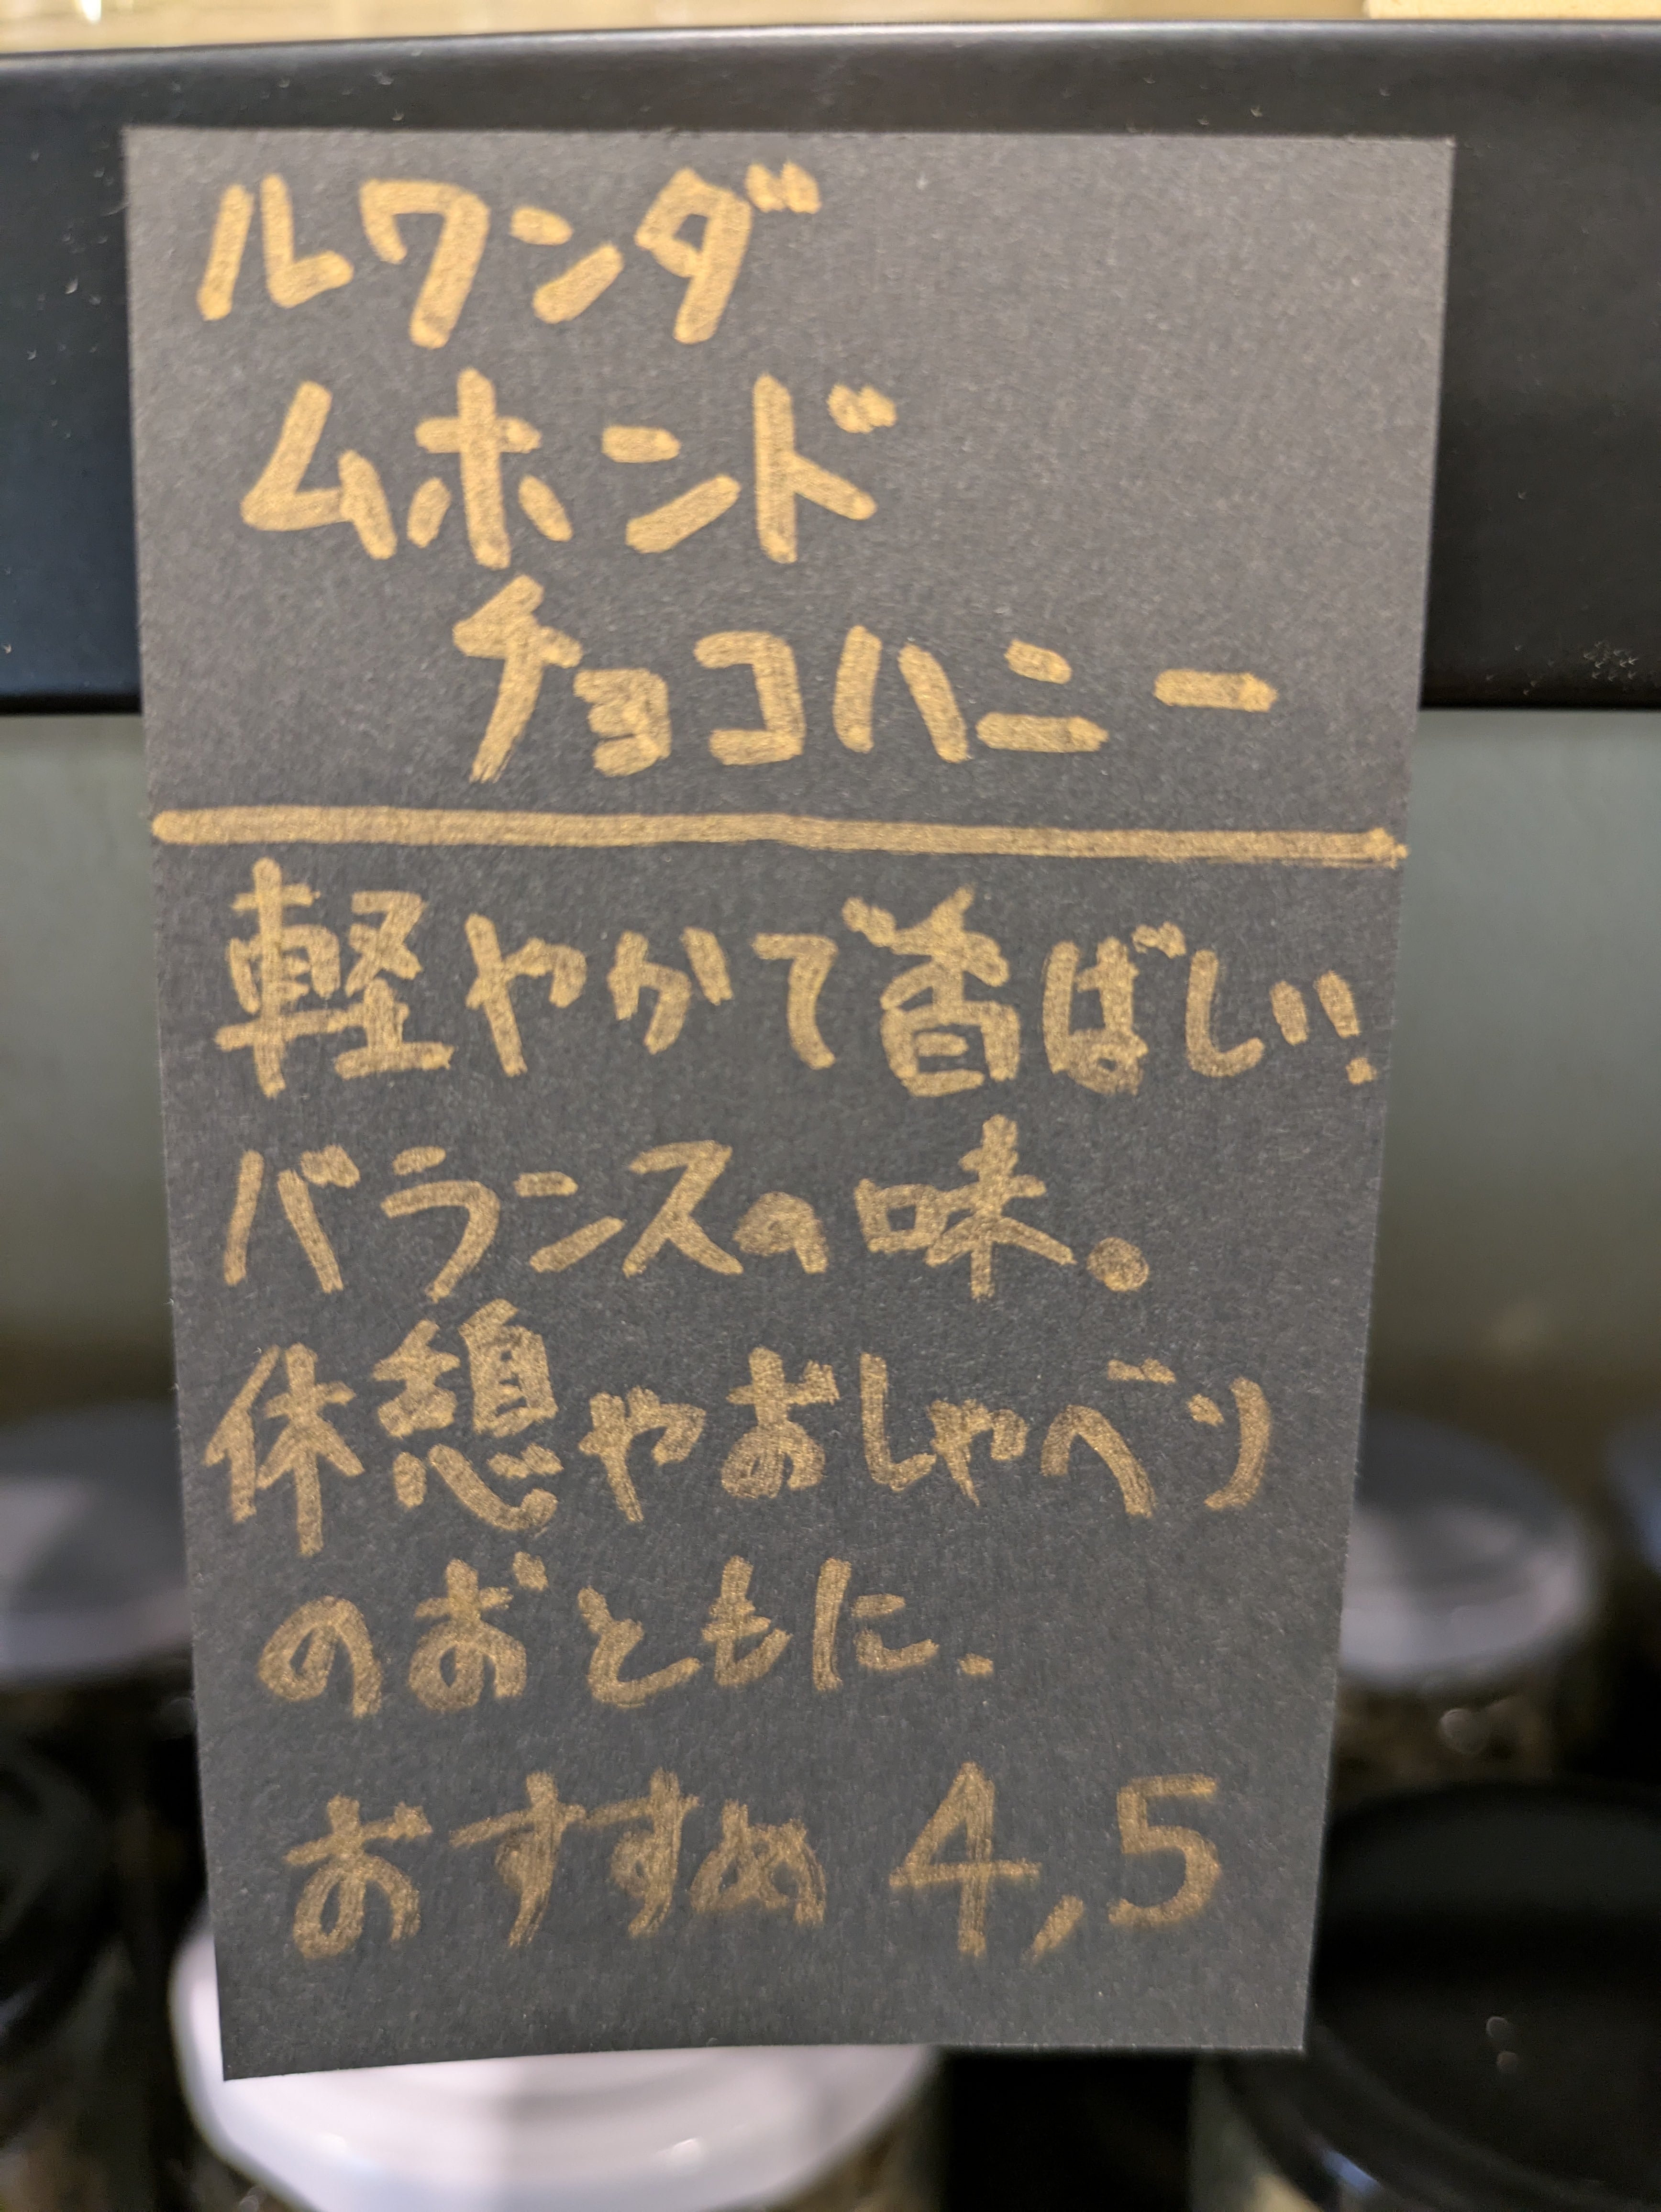 ルワンダ
ムホンド
チョコハニー
軽やかで香ばしい!
バランスの味。
休憩やおしゃべり
のおともに.
おすすめ 4,5